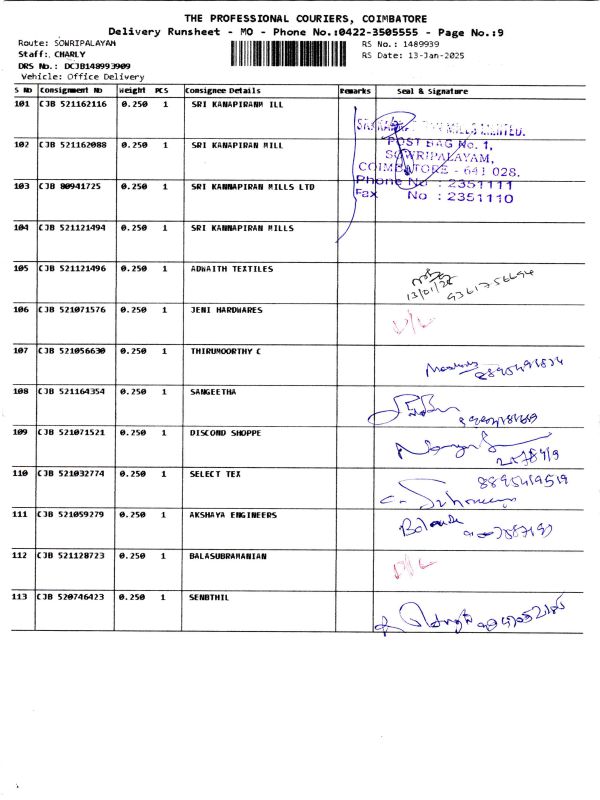 THE PROFESSIONAL COURIERS, COIMBATORE
Delivery Runsheet - MO - Phone No.:0422-3505555 - Page No.:9
Route: SOWRIPALAYAM
RS No.: 1489939
Staff: CHARLY
RS Date: 13-Jan-2025
DRS No.: DCJB148993909
Vehicle: Office Delivery
S No Consignment No Weight PCS Consignee Details Remarks Seal & Signature
101 CJB 521162116 0.250 1 SRI KANAPIRANM ILL
MILLS LIMITED.
102 CJB 521162088 0.250 1 SRI KANAPIRAN MILL
POST BAG No. 1,
SOWRIPALAYAM,
COIMBATORE - 641 028.
103 CJB 80941725 0.250 1 SRI KANNAPIRAN MILLS LTD
Phone No : 2351111
Fax No : 2351110
104 CJB 521121494 0.250 1 SRI KANNAPIRAN MILLS
105 CJB 521121496 0.250 1 ADWAITH TEXTILES
106 CJB 521071576 0.250 1 JENI HARDWARES
107 CJB 521056630 0.250 1 THIRUMOORTHY C
108 CJB 521164354 0.250 1 SANGEETHA
109 CJB 521071521 0.250 1 DISCOND SHOPPE
110 CJB 521032774 0.250 1 SELECT TEX
111 CJB 521059279 0.250 1 AKSHAYA ENGINEERS
112 CJB 521128723 0.250 1 BALASUBRAMANIAN
113 CJB 520746423 0.250 1 SENBTHIL